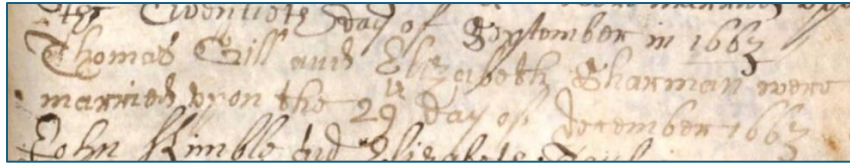 the Twentieth day of September in 1663
Thomas Gill and Elizabeth Sharman were
married vpon the 29th day of december 1663
John Kimble and Elizabeth